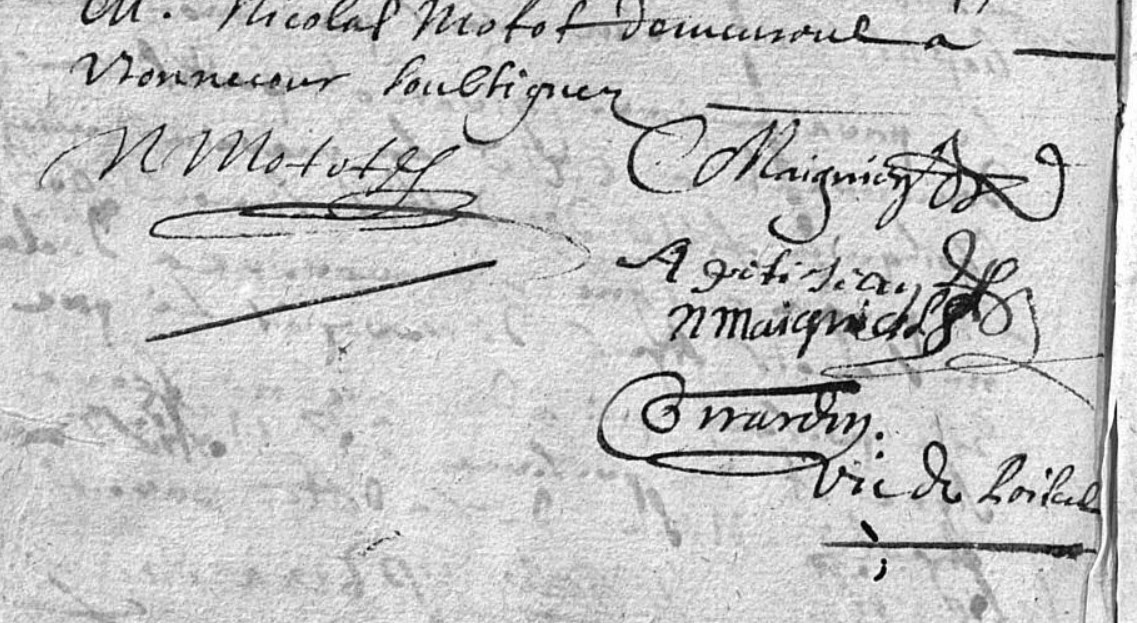 M. Nicolas Motot demeurant a
Vronnecour soubsigner
N Motot
C Maignien
A petit Jean
N maignien
Girardin.
vic de Loisel